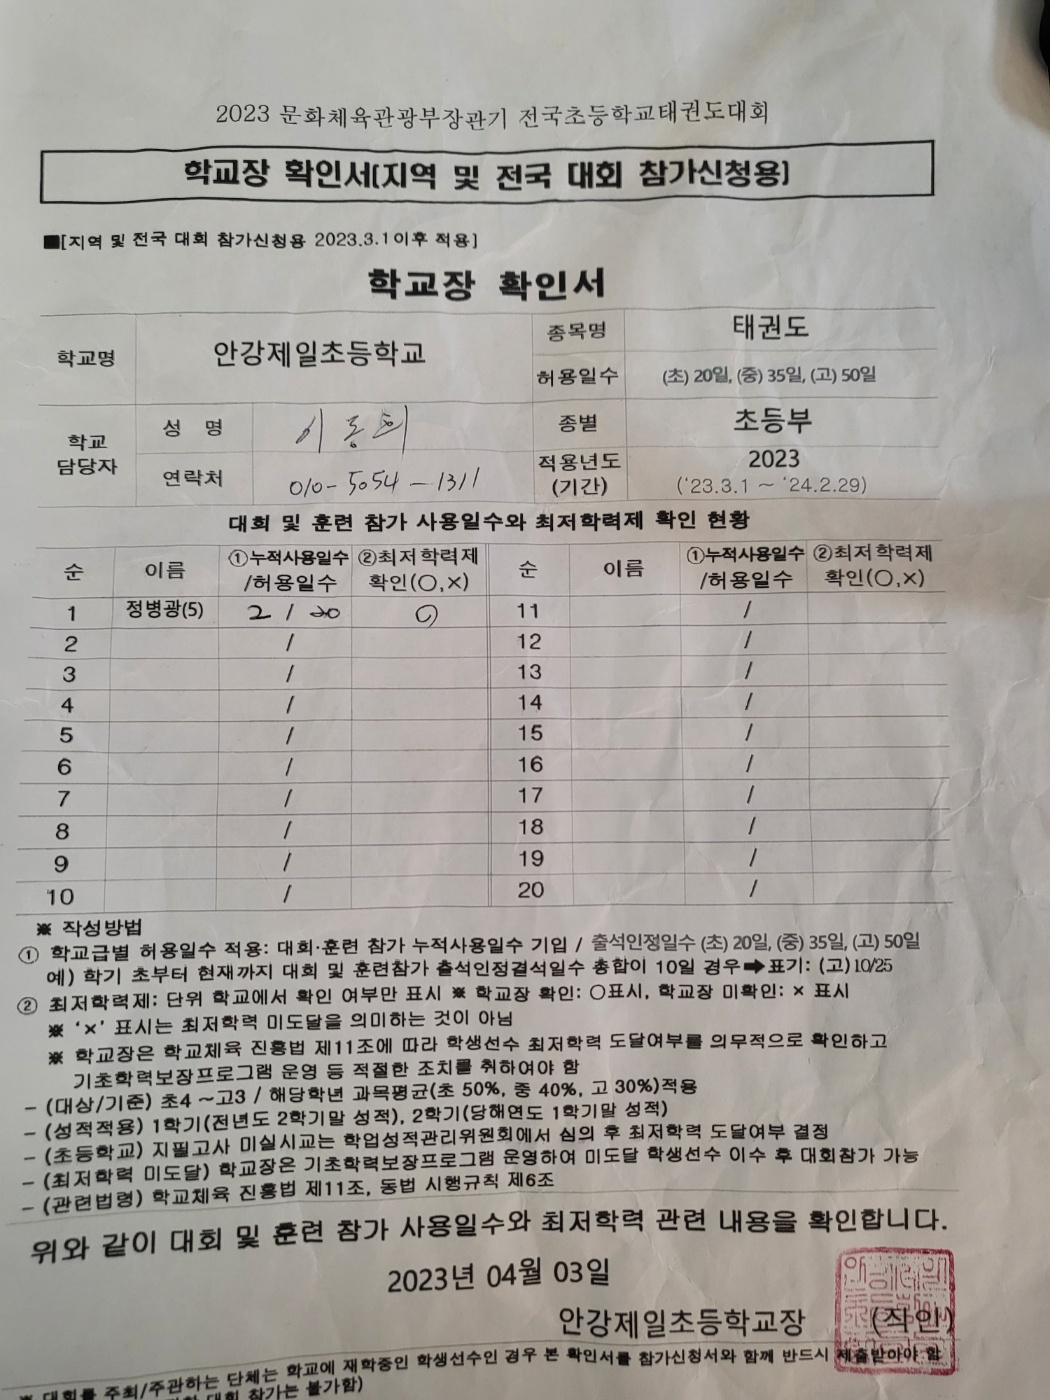 2023 문화체육관광부장관기 전국초등학교태권도대회
학교장 확인서(지역 및 전국 대회 참가신청용)
■[지역 및 전국 대회 참가신청용 2023.3.1이후 적용]
학교장 확인서
학교명 안강제일초등학교 종목명 태권도
허용일수 (초) 20일, (중) 35일, (고) 50일
학교 담당자 성 명 이동희 종별 초등부
연락처 010-5054-1311 적용년도 (기간) 2023 ('23.3.1 ~ '24.2.29)
대회 및 훈련 참가 사용일수와 최저학력제 확인 현황
순 이름 ①누적사용일수 /허용일수 ②최저학력제 확인(○,×) 순 이름 ①누적사용일수 /허용일수 ②최저학력제 확인(○,×)
1 정병광(5) 2 / 20 ○ 11 /
2 / 12 /
3 / 13 /
4 / 14 /
5 / 15 /
6 / 16 /
7 / 17 /
8 / 18 /
9 / 19 /
10 / 20 /
※ 작성방법
① 학교급별 허용일수 적용: 대회·훈련 참가 누적사용일수 기입 / 출석인정일수 (초) 20일, (중) 35일, (고) 50일
예) 학기 초부터 현재까지 대회 및 훈련참가 출석인정결석일수 총합이 10일 경우➡표기: (고) 10/25
② 최저학력제: 단위 학교에서 확인 여부만 표시 ※ 학교장 확인: ○표시, 학교장 미확인: × 표시
※ '×' 표시는 최저학력 미도달을 의미하는 것이 아님
※ 학교장은 학교체육 진흥법 제11조에 따라 학생선수 최저학력 도달여부를 의무적으로 확인하고
기초학력보장프로그램 운영 등 적절한 조치를 취하여야 함
- (대상/기준) 초4 ~고3 / 해당학년 과목평균(초 50%, 중 40%, 고 30%)적용
- (성적적용) 1학기(전년도 2학기말 성적), 2학기(당해연도 1학기말 성적)
- (초등학교) 지필고사 미실시교는 학업성적관리위원회에서 심의 후 최저학력 도달여부 결정
- (최저학력 미도달) 학교장은 기초학력보장프로그램 운영하여 미도달 학생선수 이수 후 대회참가 가능
- (관련법령) 학교체육 진흥법 제11조, 동법 시행규칙 제6조
위와 같이 대회 및 훈련 참가 사용일수와 최저학력 관련 내용을 확인합니다.
2023년 04월 03일
안강제일초등학교장 (직인)
※ 대회를 주최/주관하는 단체는 학교에 재학중인 학생선수인 경우 본 확인서를 참가신청서와 함께 반드시 제출받아야 함
대회 참가는 불가함)